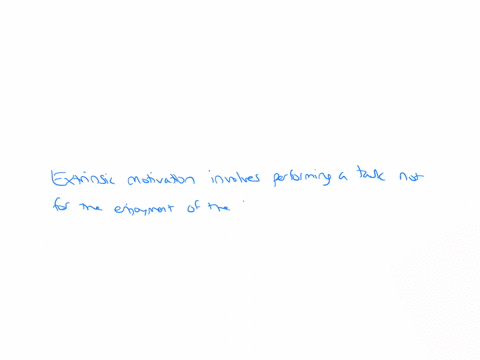 Extrinsic motivation involves performing a task not
for the enjoyment of the